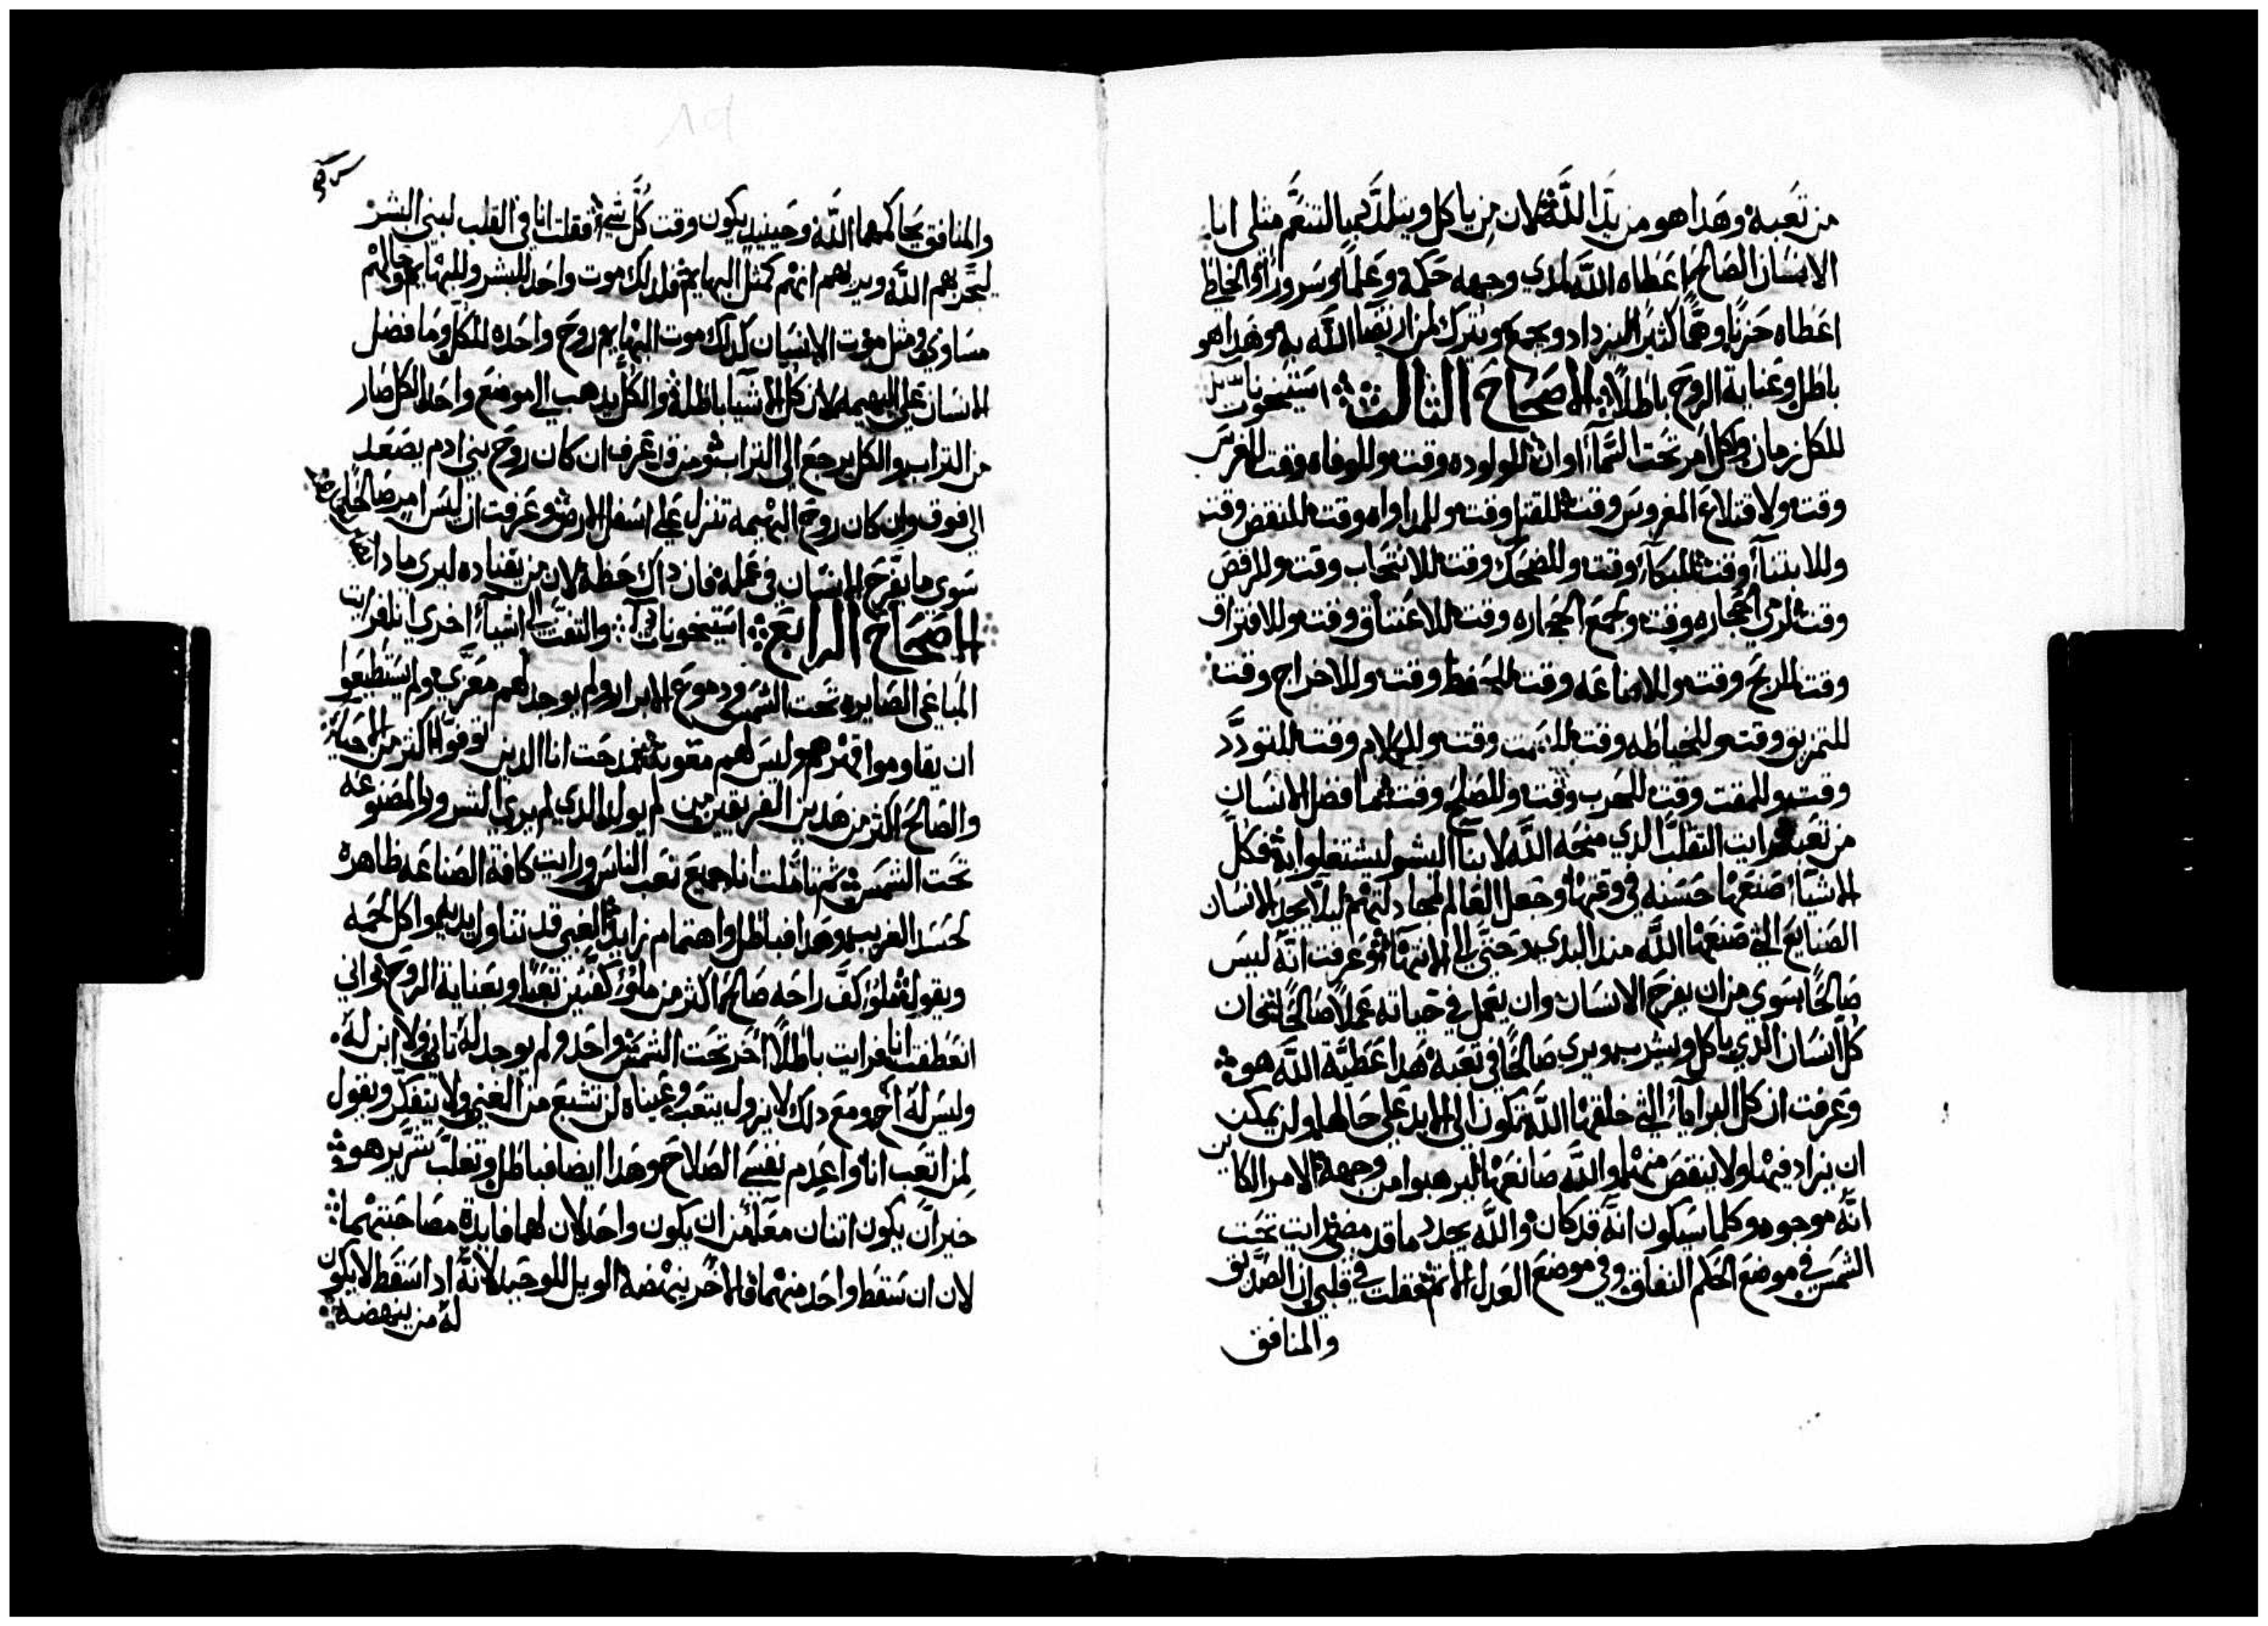 من تعبه وهذا هو من يد الله لان من ياكل ويتلذد بالتنعم مثلي انا
الانسان الصالح اعطاه الله لدي وجهه حكمة وعلما وسرورا والخاطي
اعطاه حزنا وهما كثيرا ليزداد ويجمع ويترك لمن ارتضا الله به وهذا هو
باطل وعناية الروح باطلا الاصحاح الثالث استيخونات
للكل زمان ولكل امر تحت السمآ اوان للمولوده وقت وللوفاه وقت للغرس
وقت ولاقتلاع المغروس وقت للقتل وقت وللمداواه وقت للنقض وقت
وللابتنآ وقت للبكآ وقت وللضحك وقت للانتحاب وقت وللرقص
وقت لرمي الحجاره وقت ولجمع الحجاره وقت للاعتناق وقت وللافتراق
وقت للربح وقت وللاضاعه وقت للحفظ وقت وللاخراج وقت
للتمزيق وقت وللخياطه وقت للصمت وقت وللكلام وقت للتودد
وقت وللمقت وقت للحرب وقت وللصلح وقت فما فضل الانسان
من تعبه رايت التقلب الذي منحه الله لابنآ البشر ليشتغلوا به فكل
الاشيآ صنعها حسنه في وقتها وجعل العالم لمجادلتهم ليلا يجد الانسان
الصنايع التي صنعها الله منذ البدي حتى الى الانتهآ وعرفت انه ليس
صالحا سوي من ان يفرح الانسان وان يعمل في حياته عملا صالحا فان
كل انسان الذي ياكل ويشرب ويري صالحا في تعبه هذا عطية الله هو
وعرفت ان كل البرايا التي خلقها الله تكون الى الابد على حالها ولن يمكن
ان يزاد فيها ولا ينقص منها والله صانعها ليرهبوا من وجهه الامر الكاين
انه موجود وكلما سيكون انه قد كان والله يجدد ما قد مضي رايت تحت
الشمس في موضع الحكم النفاق وفي موضع العدل الاثم فقلت في قلبي ان الصديق
والمنافق
والمنافق يحاكمهما الله وحينيد يكون وقت كل شي فقلت انا في القلب لبني البشر
ليجربهم الله ويريهم انهم كمثل البهايم فلذلك موت واحد للبشر وللبهايم وحالهم
مساوي ومثل موت الانسان كذلك موت البهايم وروح واحده للكل وما فضل
الانسان على البهيمه لان كل الاشيا باطله والكل يذهب الى موضع واحد الكل صار
من التراب والكل يرجع الى التراب ومن قد عرف ان كان روح بني ادم يصعد
الى فوق وان كان روح البهيمه تنزل على اسفل الارض وعرفت ان ليس امر صالحا
سوي ما يفرح الانسان في عمله فان ذاك حظه لان من يقتاده ليري ماذا
الاصحاح الرابع استيخونات والتفت الى اشيآ اخري انا فرايت
المباغي الصايره تحت الشمس ودموع الابرار ولم يوجد لهم معزي ولم يستطيعوا
ان يقاوموا قهرهم وليس لهم معونه فمدحت انا الدين توفوا اكثر من الاحيا
والصالح اكثر من هذين الفريقين من لم يولد الذي لم يري الشرور المصنوعه
تحت الشمس ثم تاملت انا جميع تعب الناس ورايت كافة الصناعه ظاهره
لحسد القريب وهذا فباطل واهتمام زايد الغبي قد تناول يديه واكل لحمه
ويقول ملو كف راحه صالحا اكثر من ملو كفين تعبا وبعناية الروح واني
انعطفت انا فرايت باطلا اخر تحت الشمس واحد ولم يوجد له ثاني ولا ابن له
وليس له اخ ومع ذلك لا يزول يتعب وعيناه لن تشبع من الغني ولا يتفكر ويقول
لمن اتعب انا واعدم نفسي الصلاح وهذا ايضا فباطل وتقلب شرير هو
خير ان يكون اتنان معا من ان يكون واحد لان لهما فايدة مصاحبتهما
لان ان سقط واحد منهما فالاخر ينهضه الويل للوحيد لانه اذا سقط لا يكون
له من ينهضه